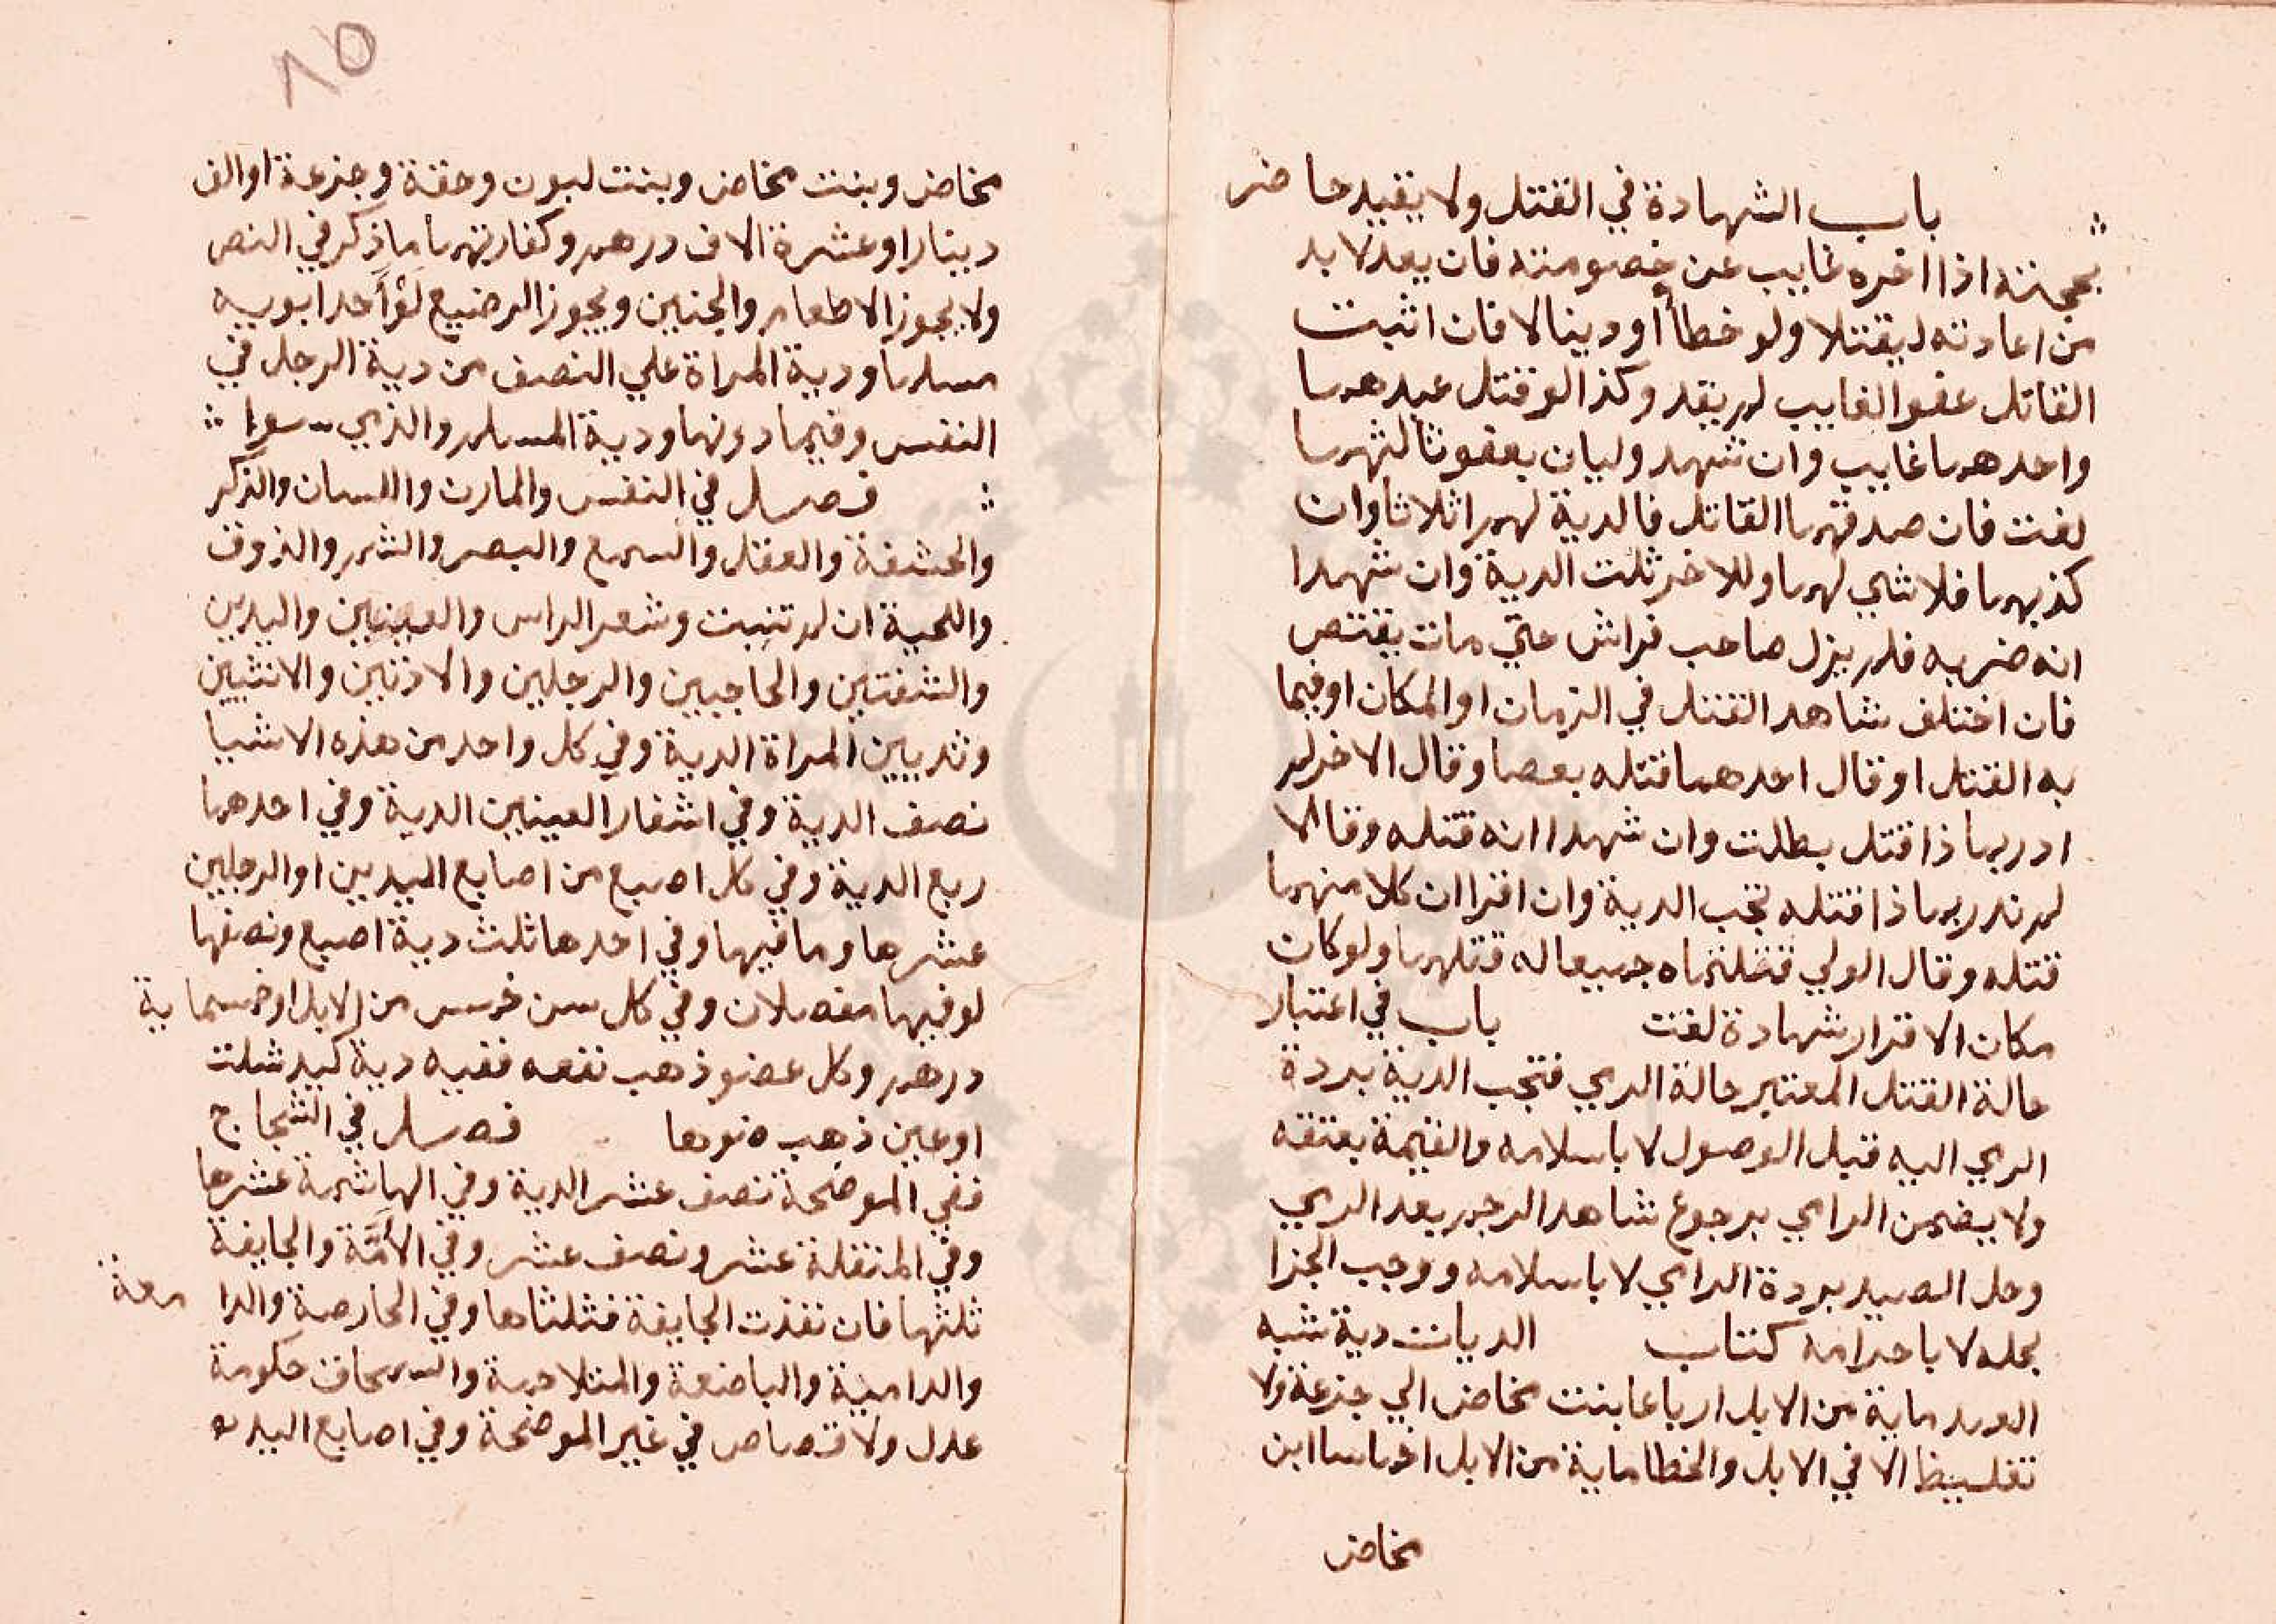 باب الشهادة في القتل ولا يقيد حاضر
بحجته اذا اخوه غايب عن خصومته فان يعد لا بد
من اعادته ليقتلا ولو خطأ او دينا لا فان اثبت
القاتل عفو الغايب لم يقد وكذا لو قتل عبدهما
واحدهما غايب وان شهد وليان بعفو ثالثهما
لغت فان صدقهما القاتل فالدية لهم اثلاثا وان
كذبهما فلا شي لهما وللاخر ثلث الدية وان شهدا
انه ضربه فلم يزل صاحب فراش حتي مات يقتص
فان اختلف شاهدا القتل في الزمان او المكان او فيما
به القتل او قال احدهما قتله بعصا وقال الاخر لم
ادر بماذا قتل بطلت وان شهدا انه قتله وقالا
لم ندر بماذا قتله تجب الدية وان اقرا ان كلا منهما
قتله وقال الولي قتلتماه جميعا له قتلهما ولو كان
مكان الاقرار شهادة لغت باب في اعتبار
حالة القتل المعتبر حالة الرمي فتجب الدية بردة
الرمي اليه قبل الوصول لا باسلامه والقيمة بعتقه
ولا يضمن الرامي برجوع شاهد الرجم بعد الرمي
وحل الصيد بردة الرامي لا باسلامه ووجب الجزا
بحله لا باحرامه كتاب الديات دية شبه
العمد ماية من الابل ارباعا بنت مخاض الي جذعة ولا
تغليظ الا في الابل والخطا ماية من الابل اخماسا ابن
مخاض
٨٥
مخاض وبنت مخاض وبنت لبون وحقة وجذعة او الف
دينار او عشرة الاف درهم وكفارتهما ما ذكر في النص
ولا يجوز الاطعام والجنين ويجوز الرضيع لو احد ابويه
مسلما ودية المراة علي النصف من دية الرجل في
النفس وفيما دونها ودية المسلم والذمي سوا
فصل في النفس والمارن واللسان والذكر
والحشفة والعقل والسمع والبصر والشم والذوق
واللحية ان لم تنبت وشعر الراس والعينين واليدين
والشفتين والحاجبين والرجلين والاذنين والانثيين
وثديين المراة الدية وفي كل واحد من هذه الاشيا
نصف الدية وفي اشفار العينين الدية وفي احدهما
ربع الدية وفي كل اصبع من اصابع اليدين او الرجلين
عشرها وما فيها وفي احدها ثلث دية اصبع ونصفها
لو فيها مفصلان وفي كل سن خمس من الابل او خمسماية
درهم وكل عضو ذهب نفعه ففيه دية كيد شلت
او عين ذهب ضوها فصل في الشجاج
ففي الموضحة نصف عشر الدية وفي الهاشمة عشرها
وفي المنقلة عشر ونصف عشر وفي الآمّة والجايفة
ثلثها فان نفذت الجايفة فثلثاها وفي الحارصة والدا معة
والدامية والباضعة والمتلاحمة والسمحاق حكومة
عدل ولا قصاص في غير الموضحة وفي اصابع اليد